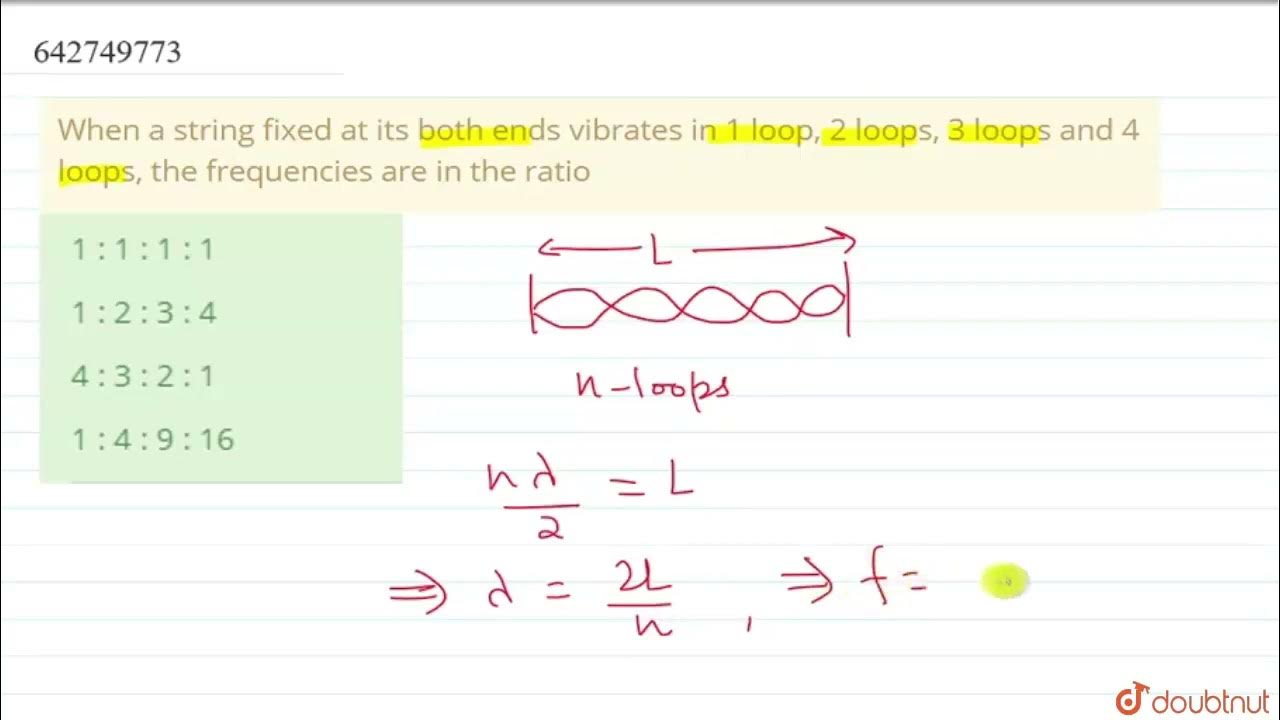 642749773
When a string fixed at its both ends vibrates in 1 loop, 2 loops, 3 loops and 4
loops, the frequencies are in the ratio
1 : 1 : 1 : 1
1 : 2 : 3 : 4
4 : 3 : 2 : 1
1 : 4 : 9 : 16
L
n-loops
nλ/2 = L
⇒ λ = 2L/n , ⇒ f =
doubtnut